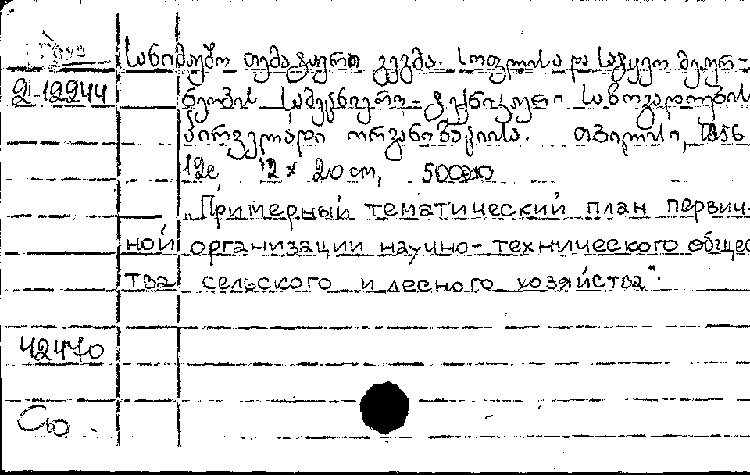 სანიმუშო თემატიური გეგმა. სოფლისა და სატყეო მეურ-
2-12944
ნეობის სამეცნიერო-ტექნიკური საზოგადოების
პირველადი ორგანიზაციისა. თბილისი, 1956
12с 12 x 20 cm, 500
"Примерный тематический план первич-
ной организации научно-технического общес
тва сельского и лесного хозяйства".
42470